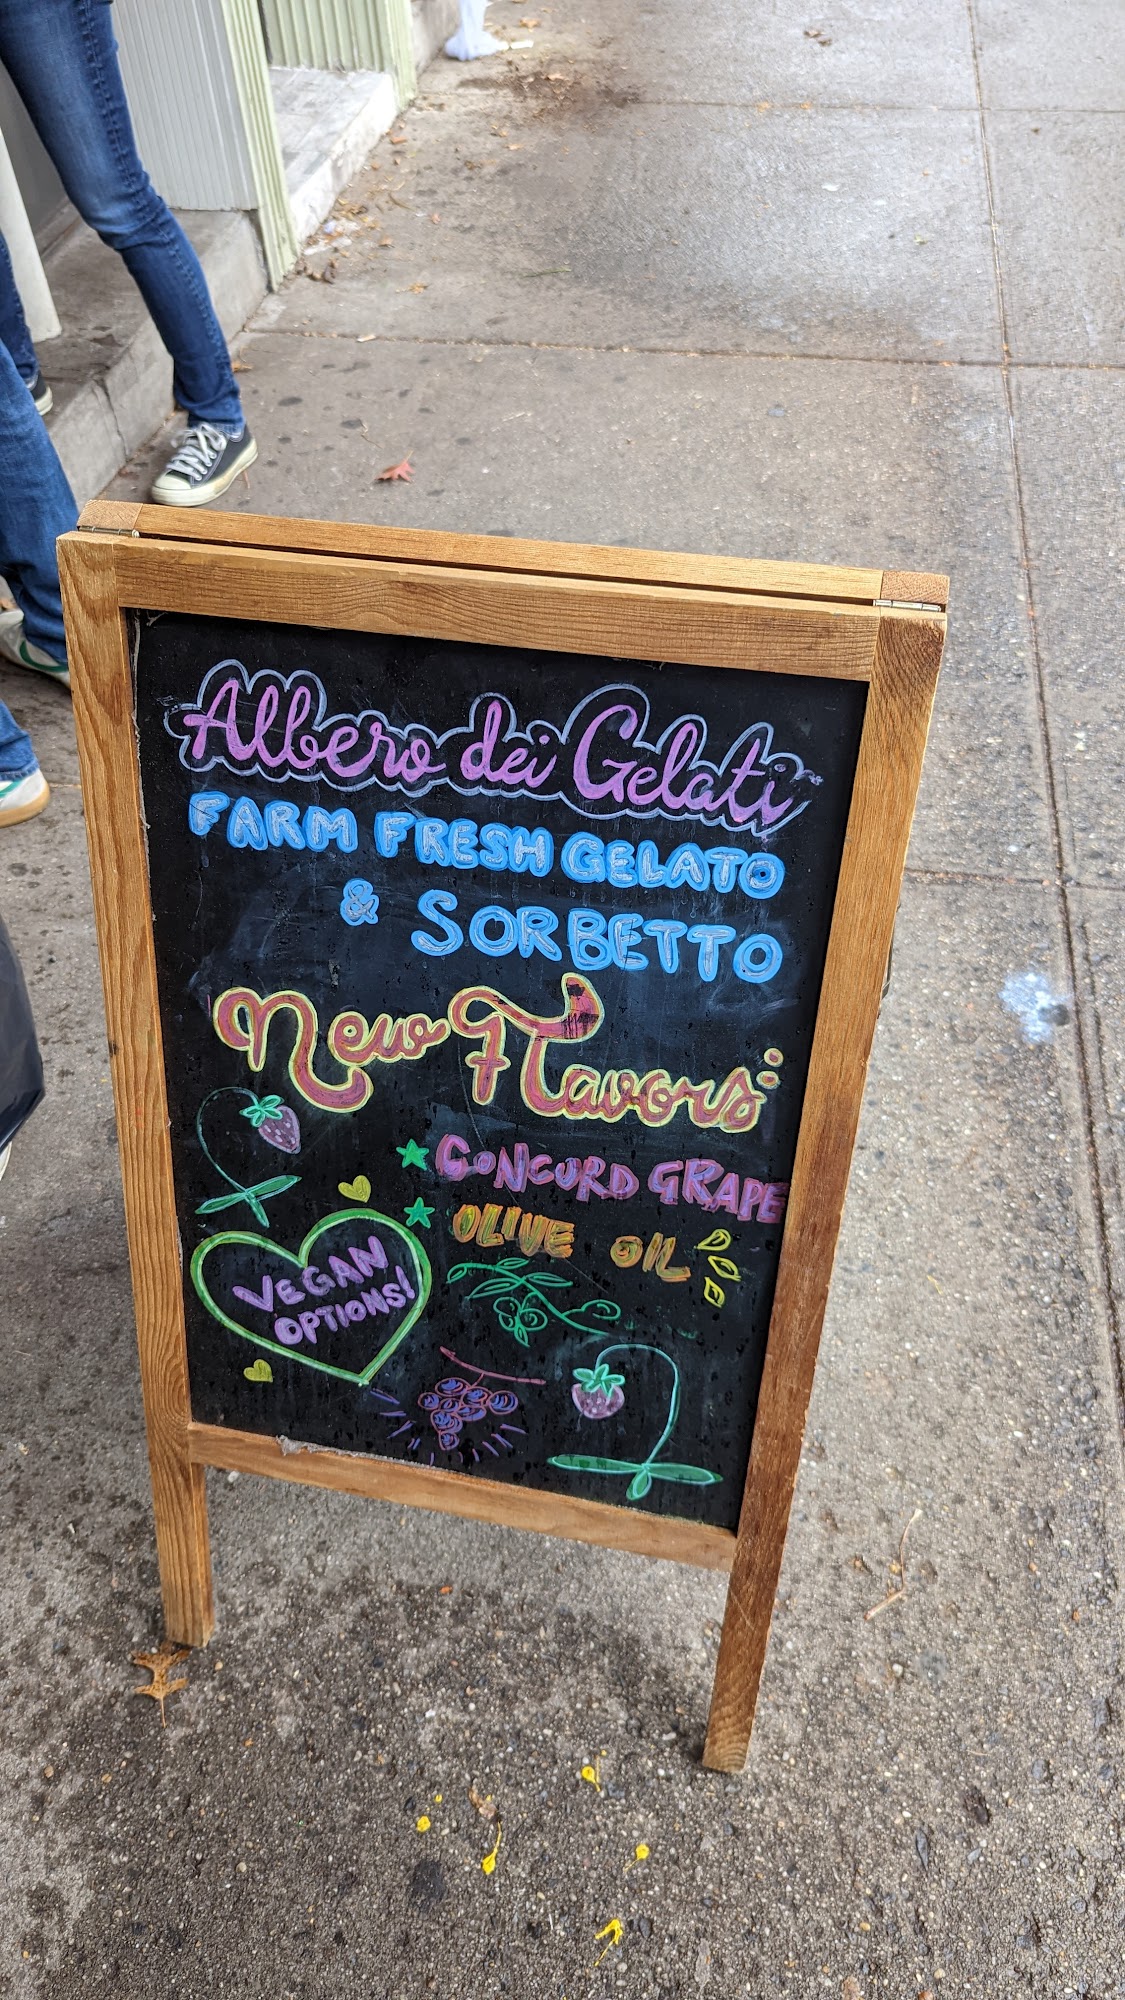 Albero dei Gelati
FARM FRESH GELATO
& SORBETTO
New Flavors:
CONCURD GRAPE
OLIVE OIL
VEGAN
OPTIONS!